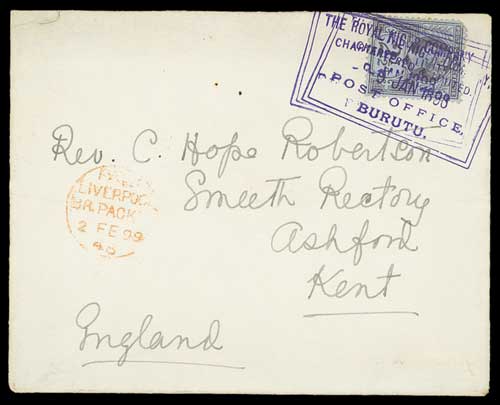 THE ROYAL NIGER COMPANY,
CHARTERED & LIMITED.
JAN 1899
POST OFFICE,
BURUTU.
Rev. C. Hope Robertson
Smeeth Rectory
Ashford
Kent
England
LIVERPOOL
BR. PACKT
2 FE 99